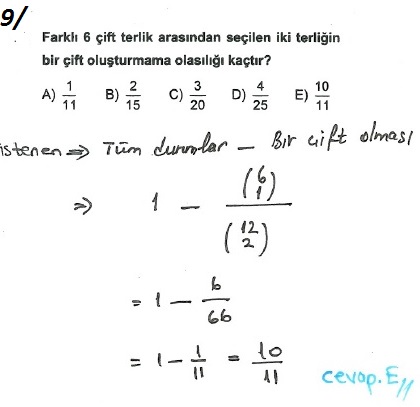 9/
Farklı 6 çift terlik arasından seçilen iki terliğin
bir çift oluşturmama olasılığı kaçtır?
A) 1/11 B) 2/15 C) 3/20 D) 4/25 E) 10/11
istenen => Tüm durumlar - Bir çift olması
=> 1 - (6 1) / (12 2)
= 1 - 6/66
= 1 - 1/11 = 10/11
cevap. E//